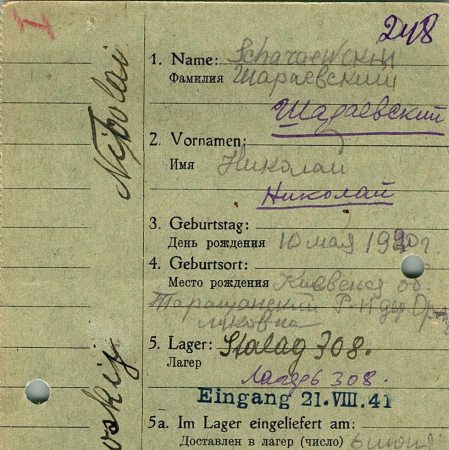 248
1. Name: Scharaewskij
Фамилия Шараевский
Шадаевский
2. Vornamen:
Имя Николай
Николай
Nikolai
3. Geburtstag:
День рождения 10 мая
4. Geburtsort:
Место рождения Киевская об.
Таращанский Р-Н дер
5. Lager: Stalag 308.
Лагерь Лагерь 308.
Eingang 21. VIII. 41
5a. Im Lager eingeliefert am:
Доставлен в лагерь (число) 6 июня